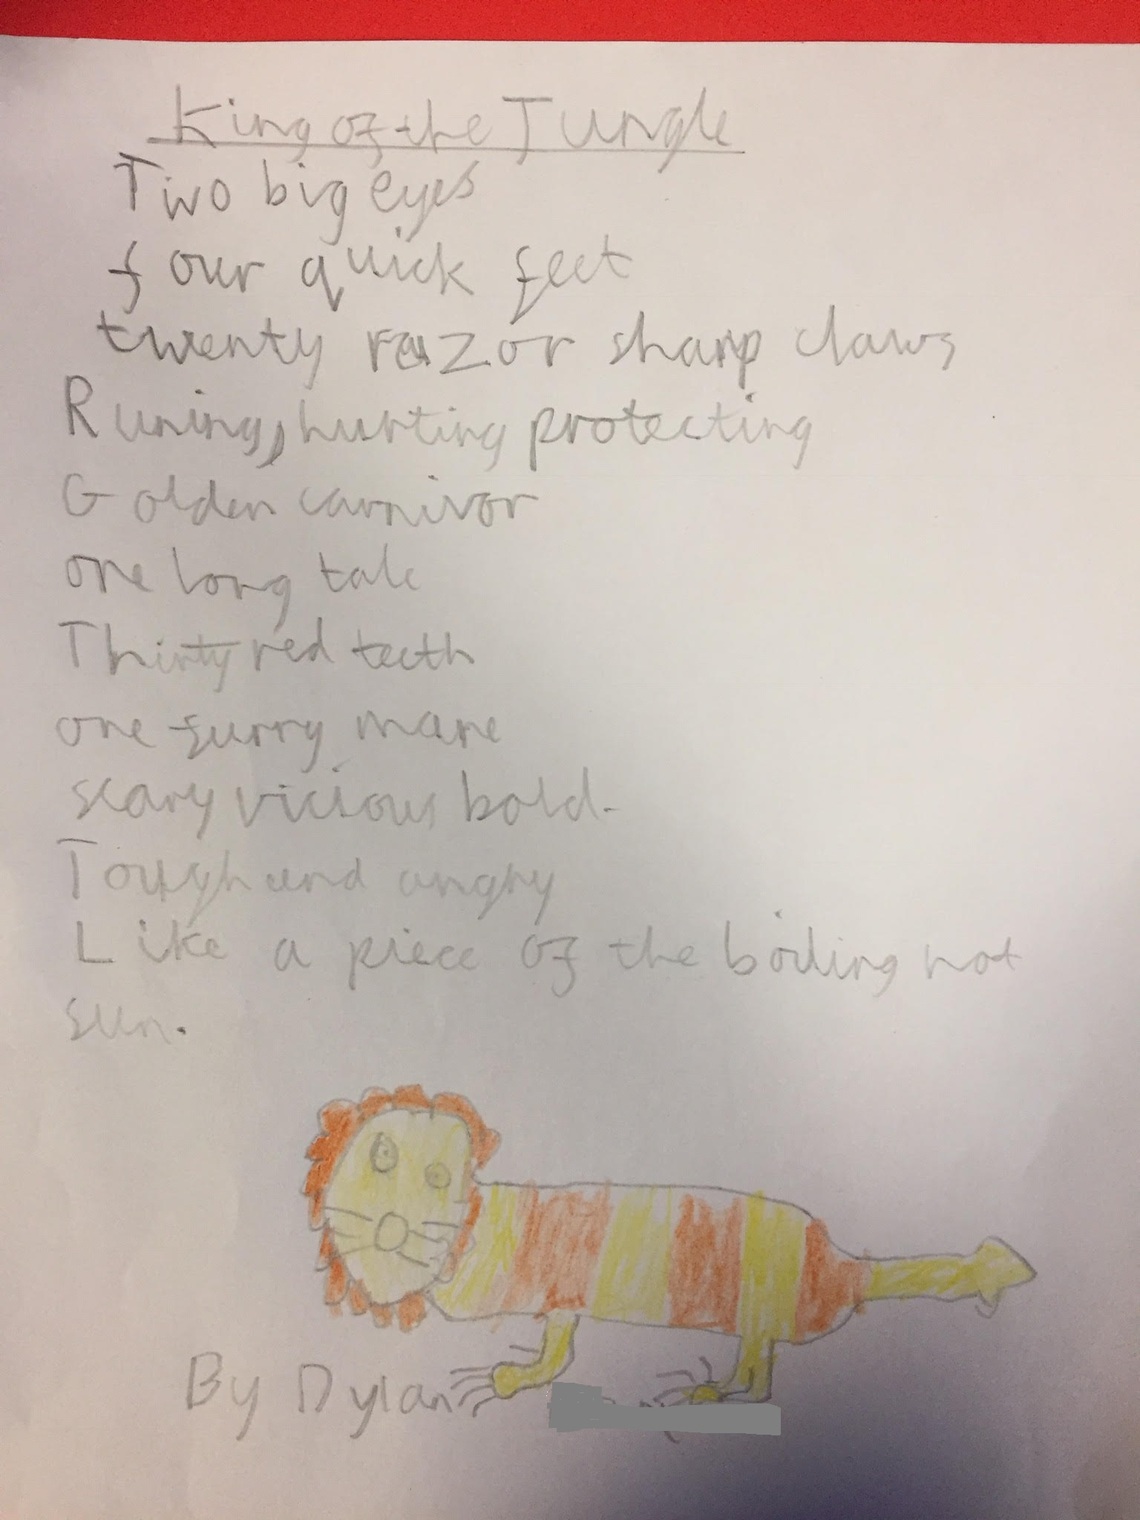 King of the Jungle
Two big eyes
four quick feet
twenty razor sharp claws
Runing, hunting protecting
Golden carnivor
one long tale
Thirty red teeth
one furry mane
scary vicious bold.
Tough and angry
Like a piece of the boiling hot
sun.
By Dylan